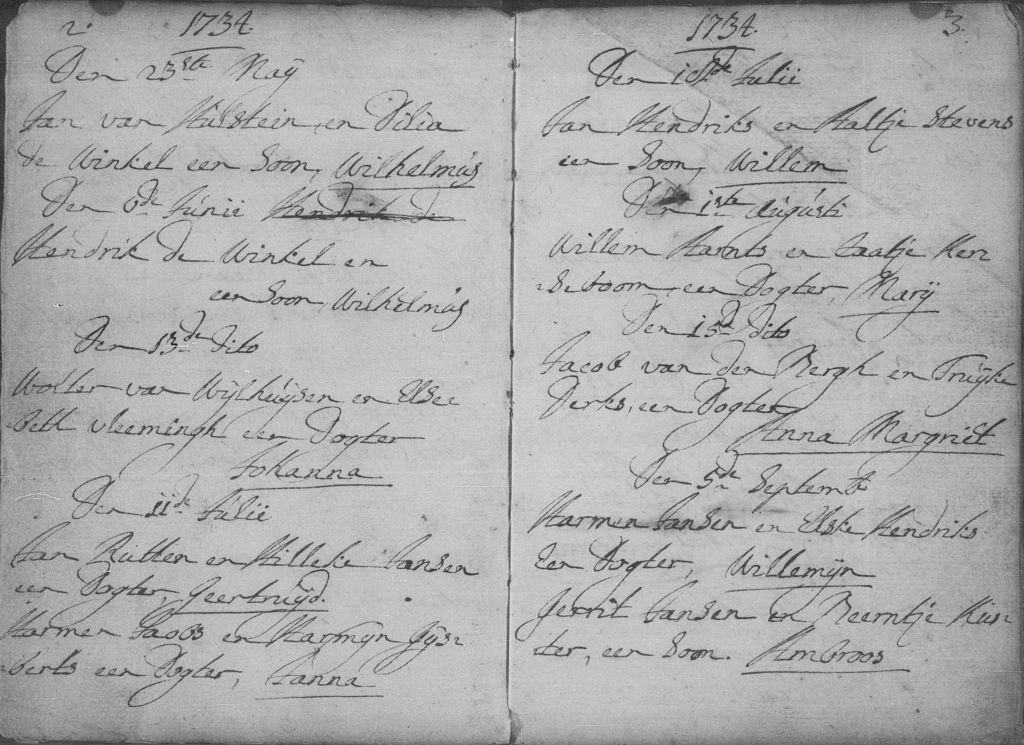 2. 1734.
Den 23ste Maÿ
Jan van Hulstein en Dilia
de Winkel een Soon, Wilhelmús
Den 6de Júnii Hendrik de
Hendrik de Winkel en
een Soon, Wilhelmús
Den 13de Dito
Wolter van Wÿlhúÿsen en Else-
-beth vleemingh een Dogter
Johanna
Den 11de Júlii
Jan Rutten en Hilleke Jansen
een Dogter, Geertruÿd.
Harmen Jacobs en Harmÿn Gÿs-
-berts een Dogter, Janna
1734. 3.
Den Julii
Jan Hendriks en Aaltje Stevens
een Soon, Willem
Den 1ste Augústi
Willem Harmts en Jaatje Ker-
-seboom, een Dogter, Marÿ
Den 15de Dito
Jacob van den Bergh en Trúÿke
Derks, een Dogter
Anna Margriet
Den 5de Septemb
Harmen Jansen en Elske Hendriks
Een Dogter, Willemÿn
Gerrit Jansen en Beerntje Kus-
-ter, een Soon. Ambroos